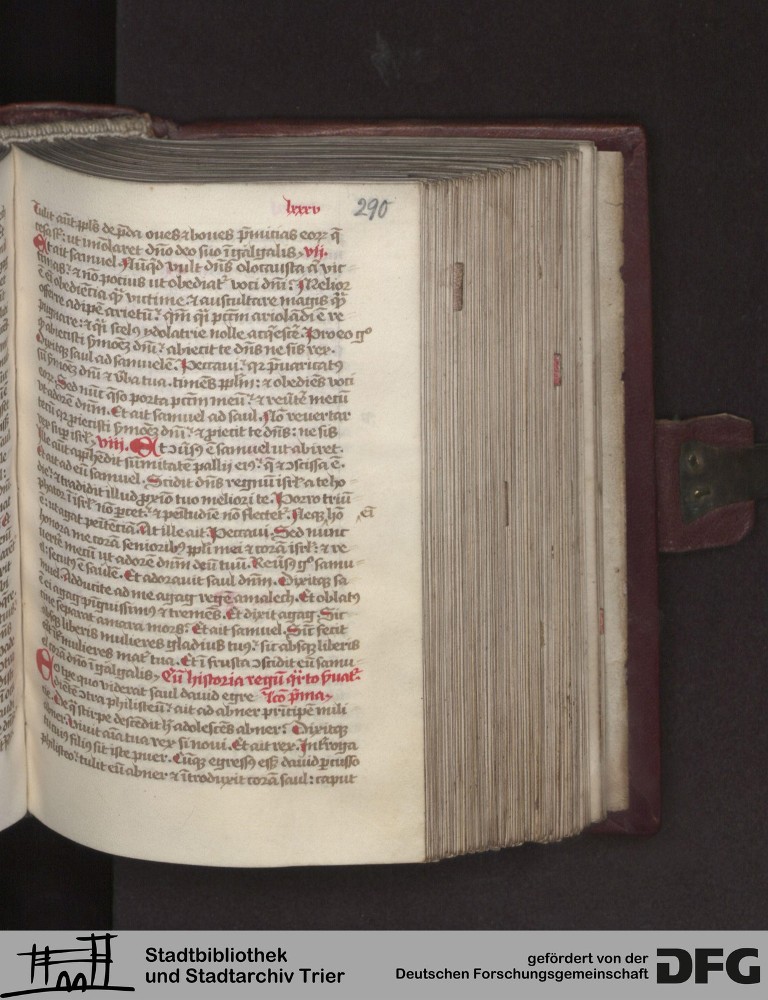 lxxxv 290
Tulit aūt ppl̄s de p̄da oues ⁊ boues p̄mitias eoꝝ q̄
cesa sꝭ: ut īmolaret dn̄o deo suo ī galgalis. vij.
Et ait samuel. Nūqͥd vult dn̄s olocausta aut vic
timas: ⁊ nō potius ut obediatꝰ voci dn̄i: Melior
ē eī obediētia qͣ̄ victime: ⁊ auscultare magis qͣ̄
offerre adipē arietū: qm̄ qͣi pctm̄ ariolādi ē re
pugnare: ⁊ qͣi scelus ydolatrie nolle acqͥescē. Pro eo gͦ
qͦ abiecisti ẜmōeꝫ dn̄i: abiecit te dn̄s ne sis rex.
Dixitqꝫ saul ad samuelē. Peccaui: qꝛ p̄uaricatꝰ
sū ẜmōeꝫ dn̄i ⁊ v̄ba tua. timēs pplm̄: ⁊ obediēs voci
eoꝝ. Sed nūc qͦso porta pctm̄ meū: ⁊ reuērtē mecū
ut adorē dnm̄. Et ait samuel ad saul. Nō reuertar
tecū qꝛ p̄iecisti ẜmōeꝫ dn̄i: ⁊ p̄iecit te dn̄s: ne sis
rex sup isrl̄. viii. Et ɔuersꝰ ē samuel ut abiret.
Ille aūt apphēdit sūmitatē pallij eiꝰ: q̄ ⁊ ɔscissa ē.
Et ait ad eū samuel. Scidit dn̄s regnū isrl̄ a te ho
die: ⁊ tradidit illud pximo tuo meliori te. Porro triū
phator ī isrl̄ nō parcet: ⁊ penitudīe nō flectetꝰ. Neqꝫ hō eī
ē: ut agat penitētiā. At ille ait. Peccaui. Sed nunc
honora me corā senioribꝰ ppl̄i mei ⁊ corā isrl̄: ⁊ re
uertē mecū ut adorē dnm̄ deū tuū. Reuersꝰ gͦ samu
el: secutꝰ ē saulē. Et adorauit saul dnm̄. Dixitqꝫ sa
muel. Adducite ad me agag regē amalech. Et oblatꝰ
ē ei agag pīguissimꝰ ⁊ tremēs. Et dixit agag. Sic
cine separat amara mors: Et ait samuel. Sic̄ fecit
absqꝫ liberis mulieres gladius tuꝰ: sic absqꝫ liberis
erit īt̄ mulieres mat̄ tua. Et ī frusta ɔscidit eū samu
el corā dn̄o ī galgalis. Cū historia regū
Eo tp̄e quo viderat saul dauid egre Lcō p̄ma
dietē ɔtra philisteū: ait ad abner pͥncipē mili
tie. De qͣ stirpe descēdit hͥ adolescēs abner: Dixitqꝫ
abner. Viuit aīa tua rex si noui. Et ait rex. Int̄roga
tu cuiꝰ filiꝰ sit iste puer. Cūqꝫ egressꝰ eēt dauid pcusso
philisteo: tulit eū abner ⁊ ītroduxit corā saul: caput
Stadtbibliothek
und Stadtarchiv Trier
gefördert von der
Deutschen Forschungsgemeinschaft DFG